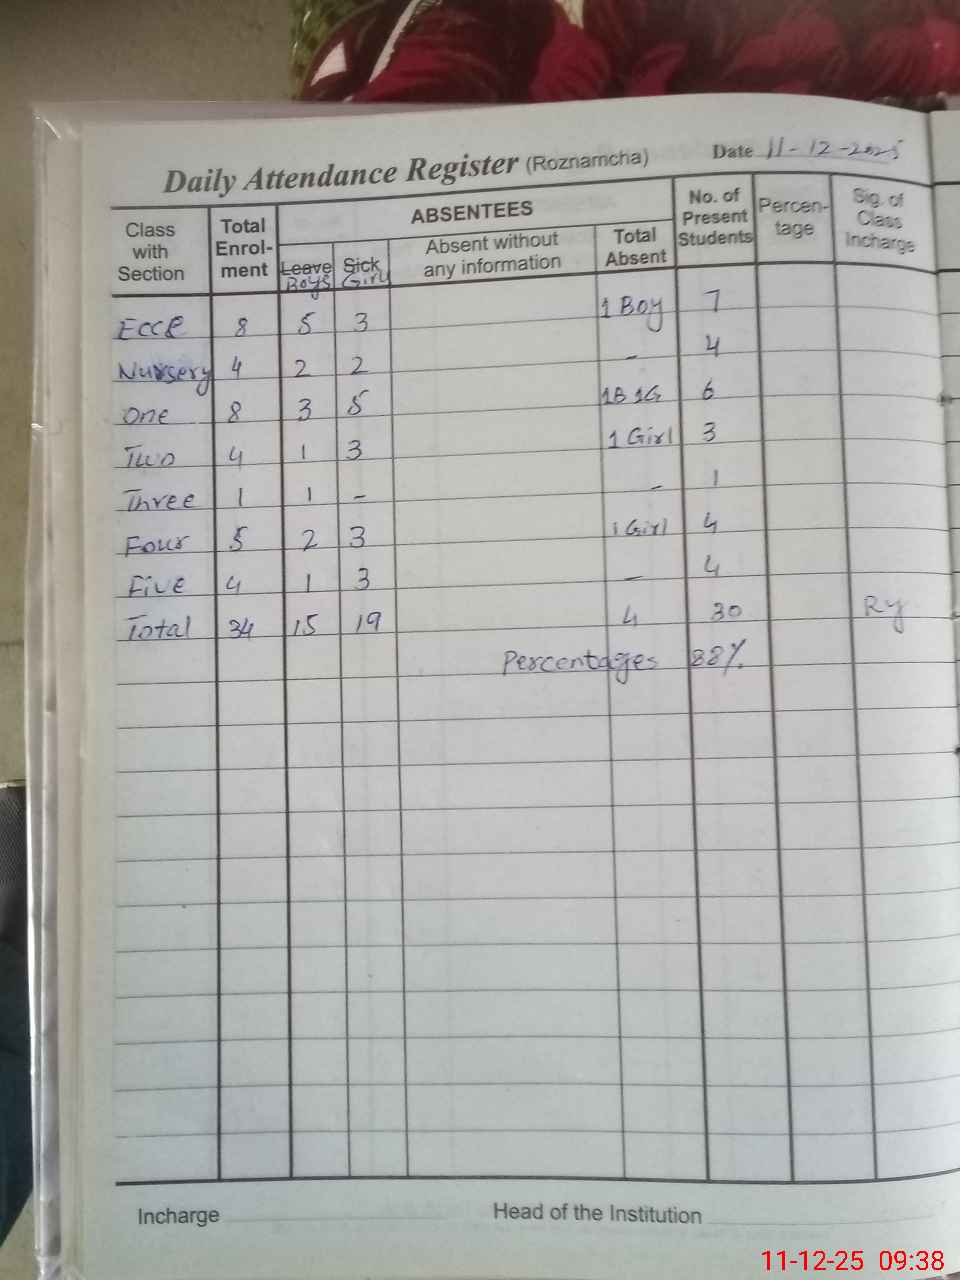 Daily Attendance Register (Roznamcha) Date 11-12-2025
Class with Section Total Enrol-ment ABSENTEES No. of Present Students Percen-tage Sig. of Class Incharge
Leave Sick Absent without any information Total Absent
Boys Girls
ECCE 8 5 3 1 Boy 7
Nursery 4 2 2 - 4
One 8 3 5 1B 1G 6
Two 4 1 3 1 Girl 3
Three 1 1 - - 1
Four 5 2 3 1 Girl 4
Five 4 1 3 - 4
Total 34 15 19 4 30
Percentages 88%
Incharge Head of the Institution
11-12-25 09:38